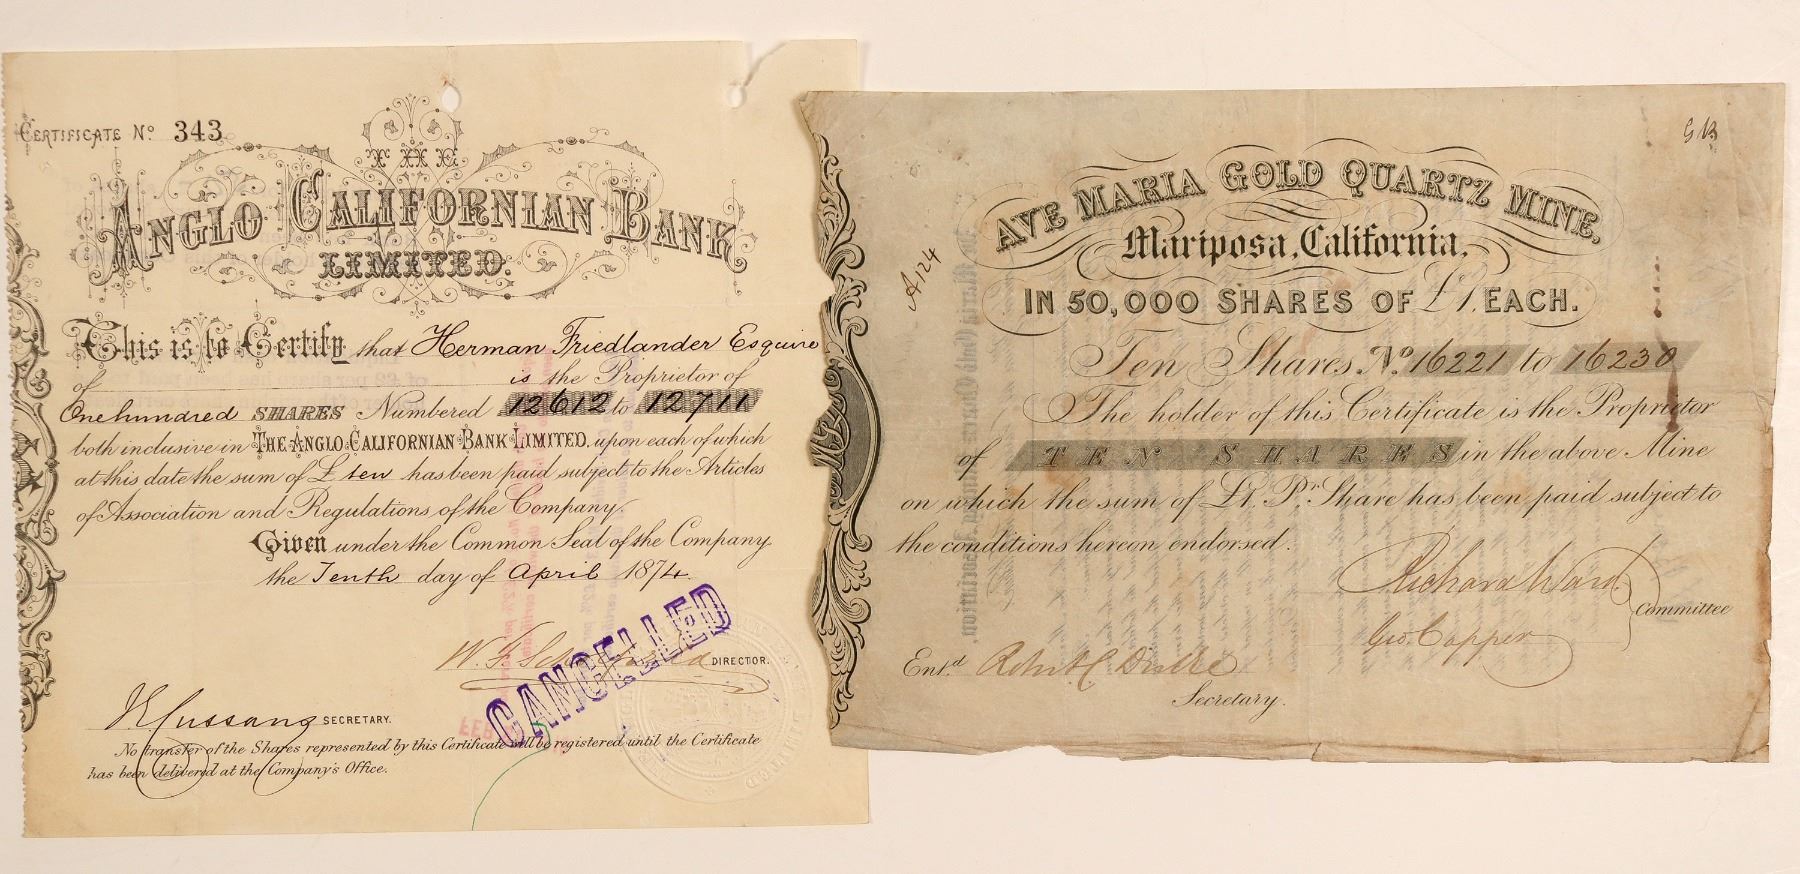 CERTIFICATE No. 343
THE
ANGLO CALIFORNIAN BANK
LIMITED.
This is to Certify that Herman Friedlander Esquire
of is the Proprietor of
One hundred SHARES Numbered 12612 to 12711
both inclusive in THE ANGLO CALIFORNIAN BANK LIMITED, upon each of which
at this date the sum of £ ten has been paid subject to the Articles
of Association and Regulations of the Company.
Given under the Common Seal of the Company
the Tenth day of April 1874.
DIRECTOR.
CANCELLED
SECRETARY.
No transfer of the Shares represented by this Certificate will be registered until the Certificate
has been delivered at the Company's Office.
G B
A124
AVE MARIA GOLD QUARTZ MINE,
Mariposa, California,
IN 50,000 SHARES OF £1, EACH.
Ten Shares. No. 16221 to 16230
The holder of this Certificate is the Proprietor
of TEN SHARES in the above Mine
on which the sum of £1. Pr. Share has been paid subject to
the conditions hereon endorsed.
Richard Ward
Committee
Geo. Copper
Entd. Robert C
Secretary.